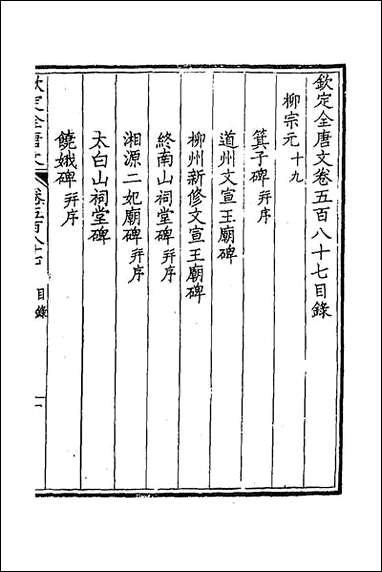 欽定全唐文卷五百八十七目錄
柳宗元十九
箕子碑并序
道州文宣王廟碑
柳州新修文宣王廟碑
終南山祠堂碑并序
湘源二妃廟碑并序
太白山祠堂碑
饒娥碑并序
欽定全唐文 卷五百八十七 目錄 一